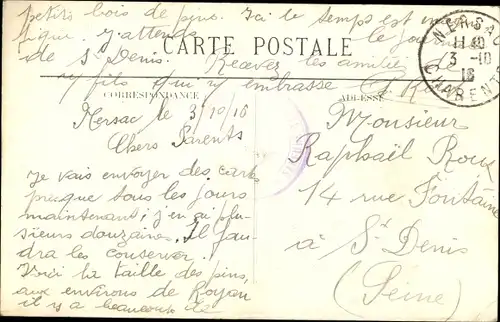 petits bois de pins. Ici le temps est
J'attends le journal
de St Denis. Recevez les amitiés de
fils qui v embrasse
CARTE POSTALE
CORRESPONDANCE
ADRESSE
NERSAC
11 40
3 -10
16
CHARENTE
Nersac le 3/10/16
Chers Parents
Je vais envoyer des cart
presque tous les jours
maintenant; j'en ai plu-
sieurs douzaines. Il fau-
dra les conserver.
Voici la taille des pins,
aux environs de Royan
il y a beaucoup de
Monsieur
Raphaël Roux
14 rue Fontaine
à St Denis
(Seine)